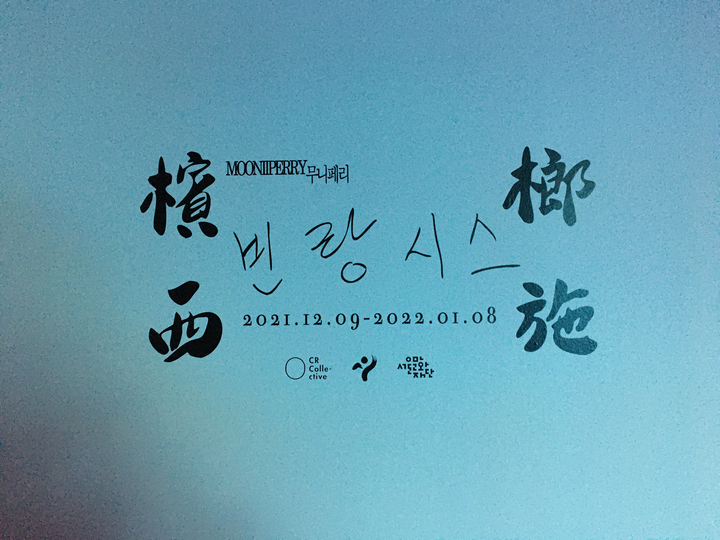 MOONIIPERRY 무니페리
檳 榔
빈 랑 시 스
西 施
2021.12.09-2022.01.08
CR
Colle-
ctive
서울문화재단